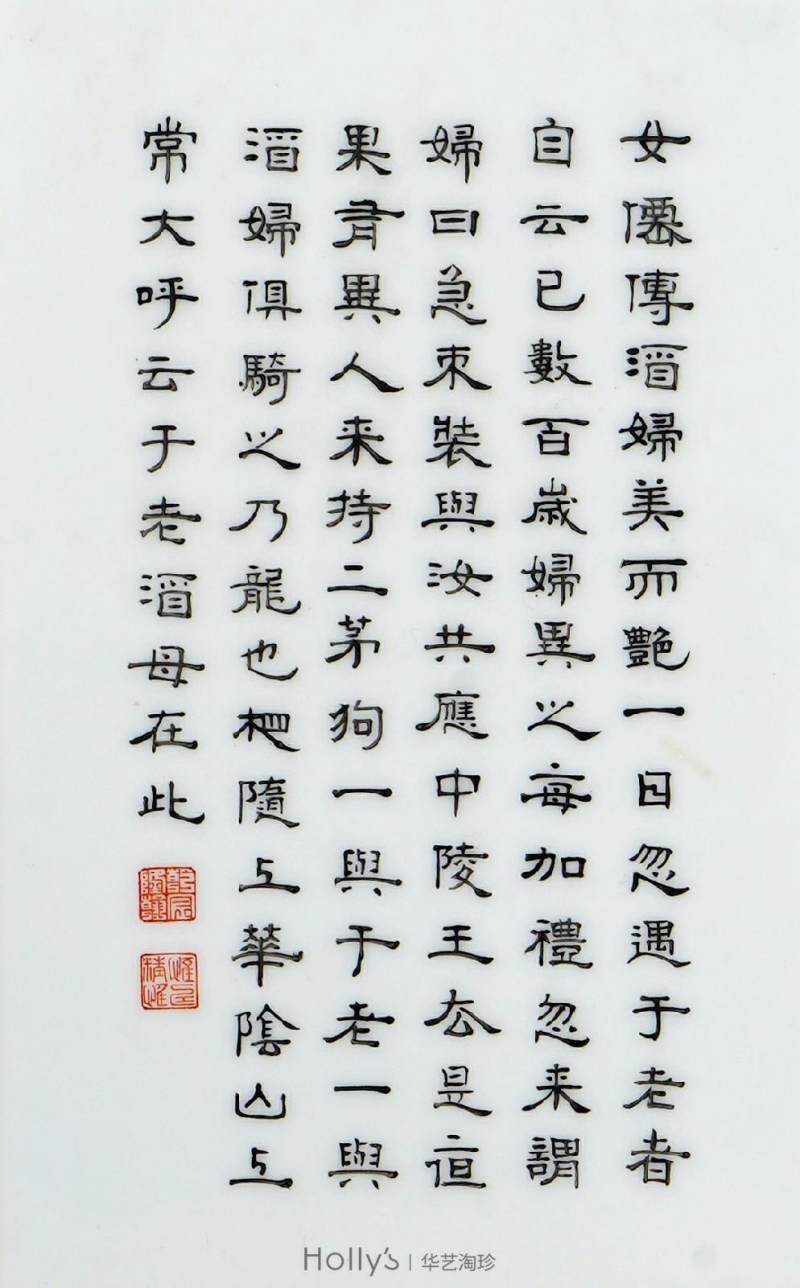 女僊傳酒婦美而艷一日忽遇于老者
自云已數百歲婦異之每加禮忽来謂
婦曰急束裝與汝共應中陵王去是亱
果有異人来持二茅狗一與于老一與
酒婦俱騎之乃龍也相隨上華陰山上
常大呼云于老酒母在此
Holly's | 华艺淘珍